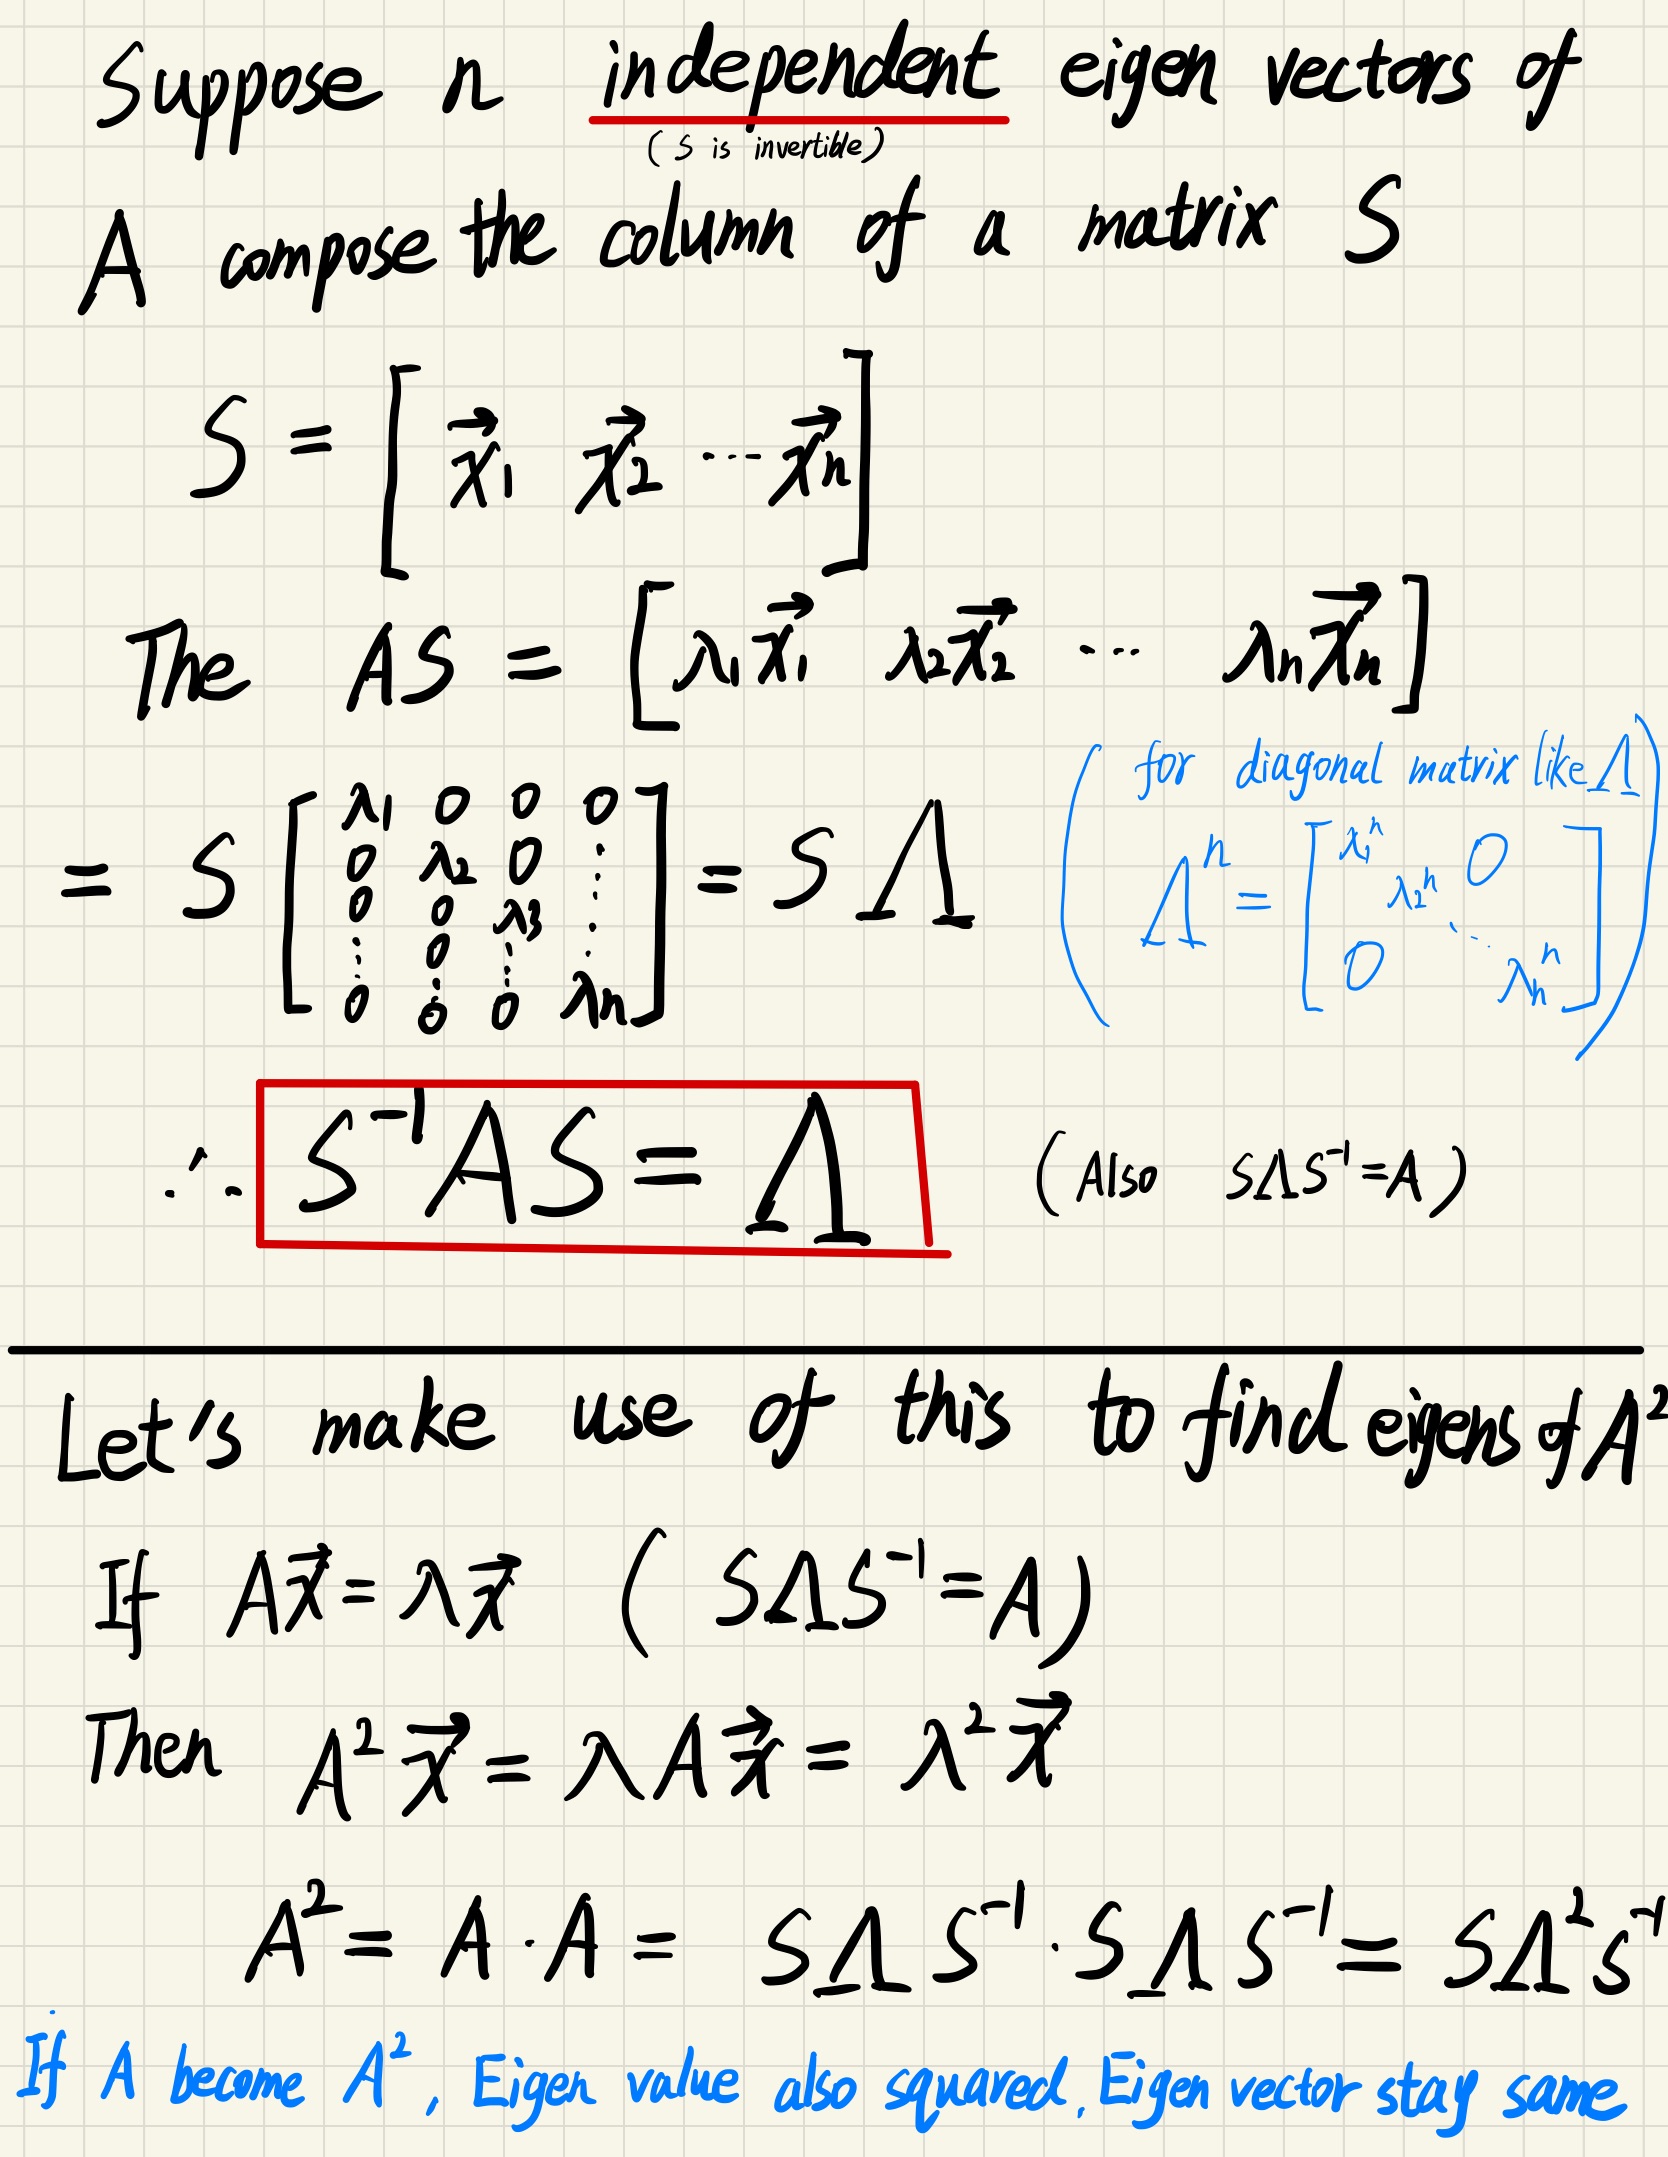 Suppose n independent eigen vectors of
(S is invertible)
A compose the column of a matrix S
S = [ x⃗₁ x⃗₂ ⋯ x⃗ₙ ]
The AS = [ λ₁x⃗₁ λ₂x⃗₂ ⋯ λₙx⃗ₙ ]
= S [ λ₁ 0 0 0
0 λ₂ 0 ⋮
0 0 λ₃ ⋮
⋮ 0 ⋮ ⋮
0 0 0 λₙ ] = S Λ
( for diagonal matrix like Λ
Λⁿ = [ λ₁ⁿ 0
λ₂ⁿ
⋱
0 λₙⁿ ] )
∴ S⁻¹AS = Λ (Also SΛS⁻¹=A)
Let's make use of this to find eigens of A²
If Ax⃗ = λx⃗ ( SΛS⁻¹ = A )
Then A²x⃗ = λAx⃗ = λ²x⃗
A² = A · A = SΛS⁻¹ · SΛS⁻¹ = SΛ²S⁻¹
If A become A², Eigen value also squared. Eigen vector stay same